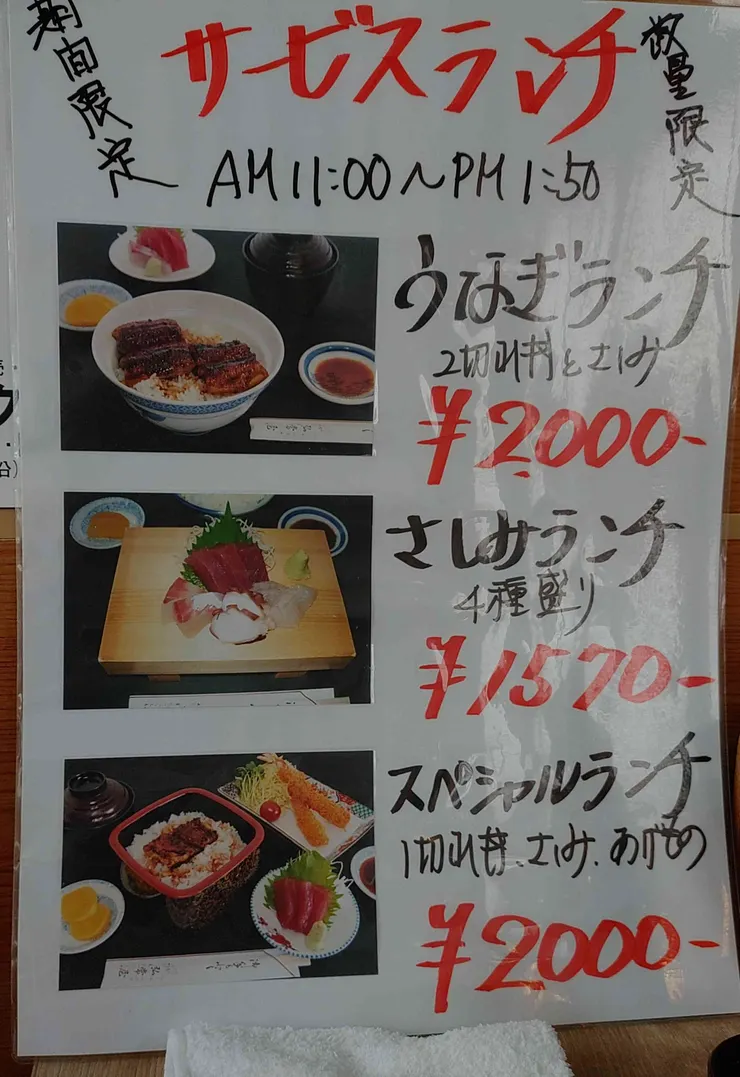 期間限定
サービスランチ
数量限定
AM11:00～PM1:50
うなぎランチ
2切れ丼とさしみ
¥2.000-
さしみランチ
4種盛り
¥1570-
スペシャルランチ
1切れ丼、さしみ、あげもの
¥2000-